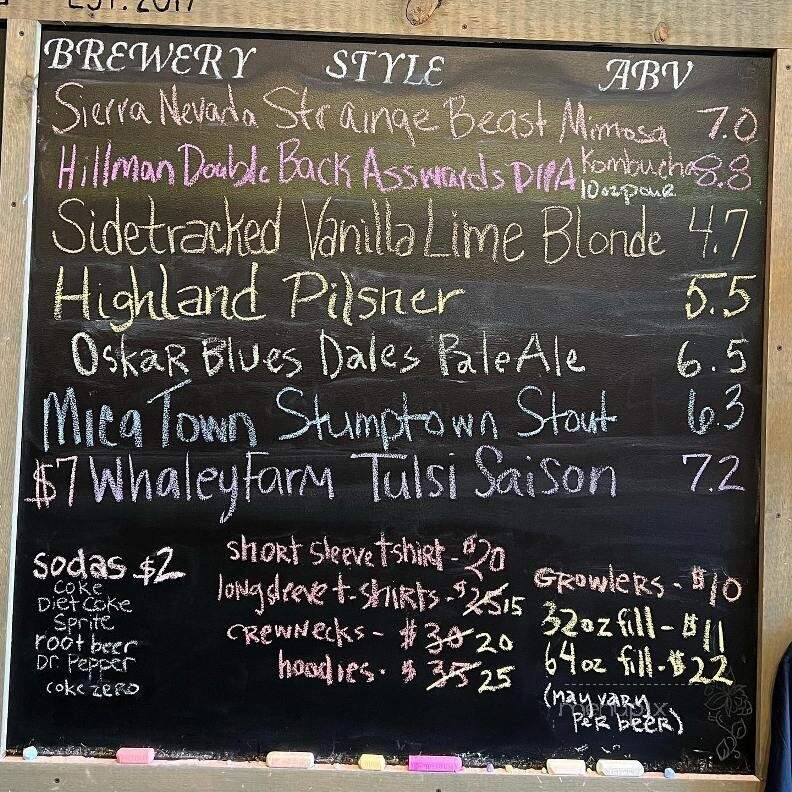 EST. 2017
BREWERY STYLE ABV
Sierra Nevada Strainge Beast Mimosa Kombucha 7.0
Hillman Double Back Asswards DIPA 10 oz pour 8.8
Sidetracked Vanilla Lime Blonde 4.7
Highland Pilsner 5.5
Oskar Blues Dales Pale Ale 6.5
Mica Town Stumptown Stout 6.3
$7 Whaley Farm Tulsi Saison 7.2
sodas $2
Coke
Diet Coke
Sprite
root beer
Dr. Pepper
coke zero
short sleeve t shirt - $20
long sleeve t-shirts - $25 15
crewnecks - $30 20
hoodies - $35 25
Growlers - $10
32 oz fill - $11
64 oz fill - $22
(may vary
per beer)
menupix